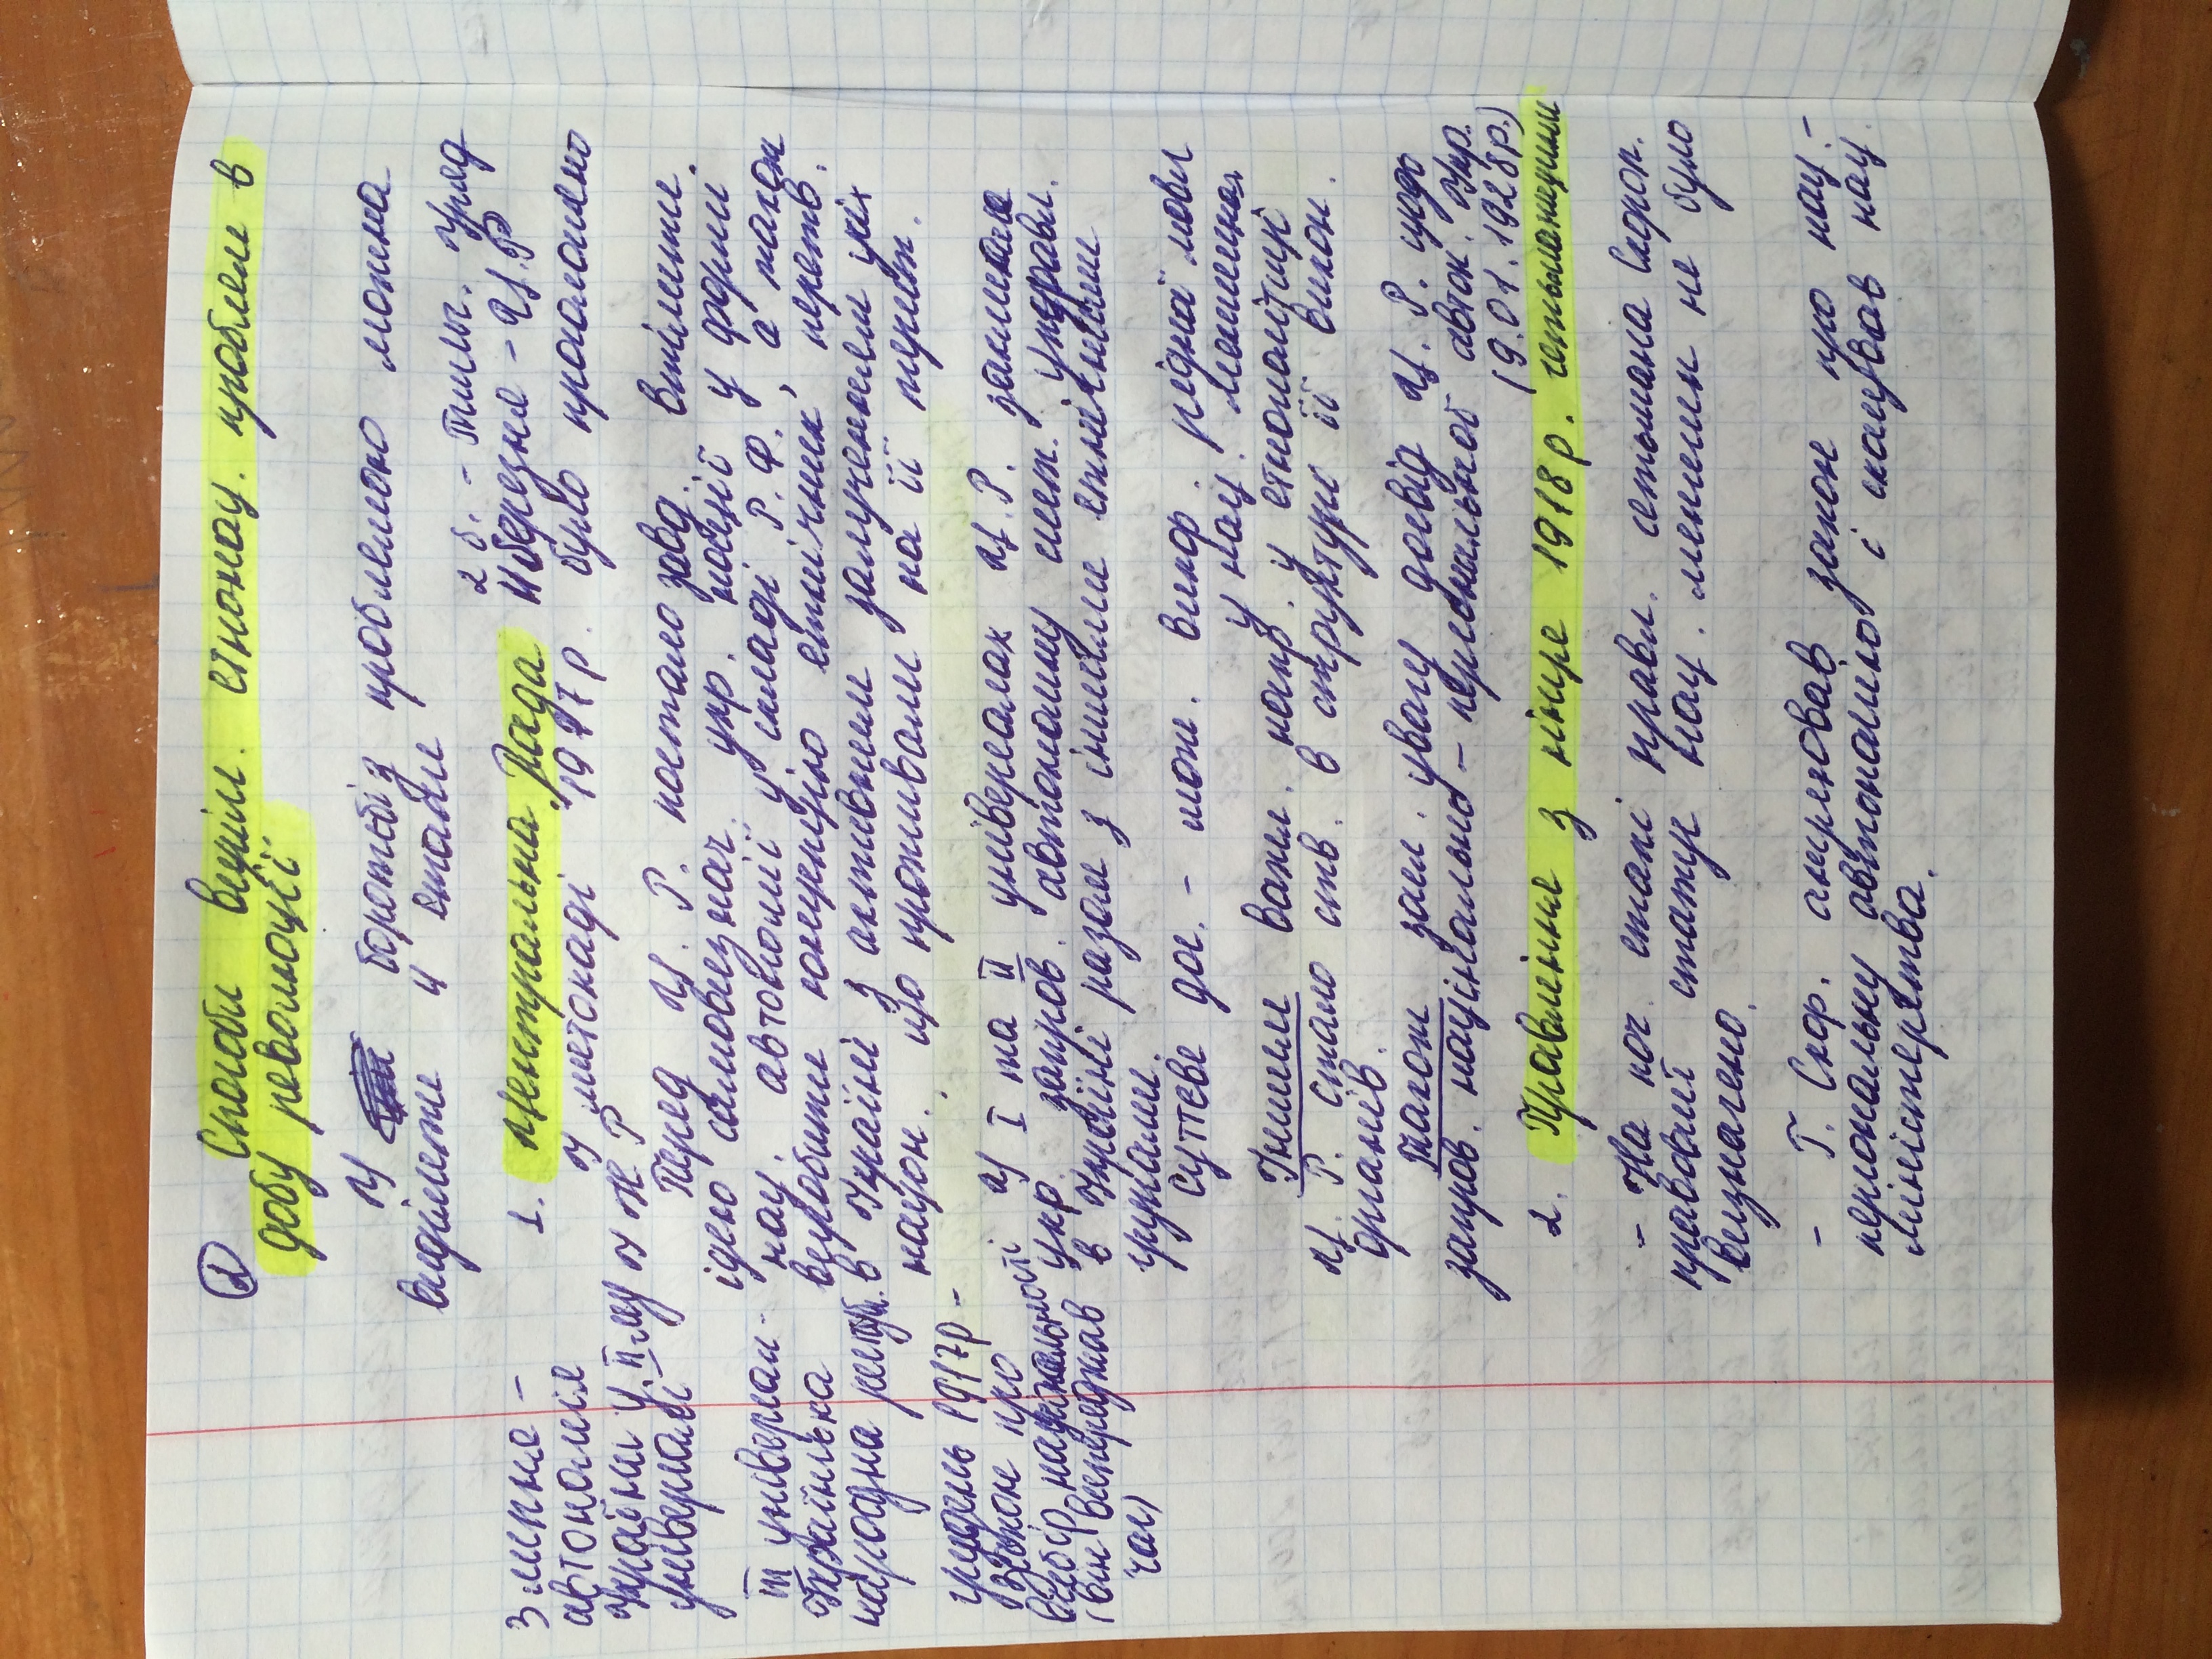 2 Способи виріш. етнонац. проблем в
добу революції
У боротьбі з проблемою можна
виділити 4 етапи
2 б. - Тимч. Уряд
1. Центральна Рада 4 березня - Ц.Р
У листопаді 1917 р. було проголошено
У Н Р
Перед Ц. Р. постало завд. втілити
ідею самовизнач. укр. нації у формі
нац. автономії у складі Р.Ф., а також
виробити концепцію етнічних перетв.
в Україні з активним залученням усіх
націон. що проживали на її терит.
У I та II універсалах Ц.Р. закликала
укр. запров. автономну сист. управл.
в Україні разом з іншими етнічними
групами.
Суттєве дос. - мож. викор. рідної мови
у нац. меншинах
Іншим важл. напр. у етнополітиці
Ц. Р. стало ств. в структурі її викон.
органів.
Також засл. увагу досвід Ц. Р. щодо
запров. націнально - персональної автон. Укр.
(9.01.1928р.)
2. Правління з кінце 1918 р. гетьманщини
- На поч. етапі правл. гетьмана Скороп.
правовий статус нац. меншин не було
визначено.
- Г. Скор. анулював закон про нац. -
персональну автономію і скасував нац.
міністерства.
3 липня -
автономія
України у II-му
універсалі
III універсал -
Українська
народна респуб.
грудень 1917р -
закон про
вибір національності
(він випереджав
час)